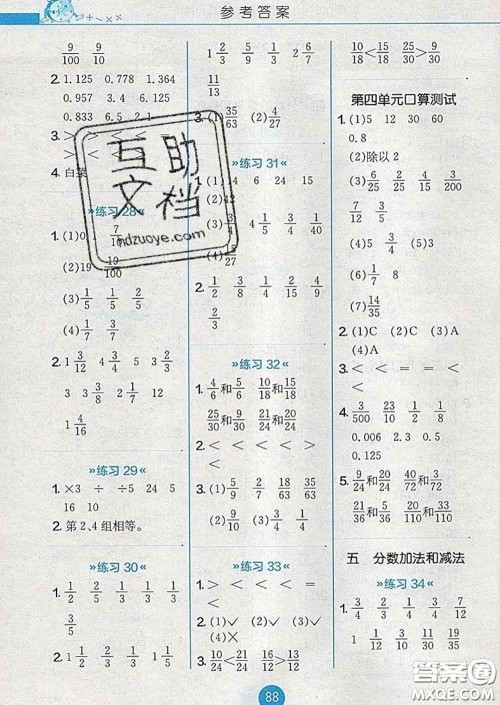 参考答案
9/100 9/10
2. 1.125 0.778 1.364
0.957 3.6 6.14
0.833 6.5 2.1
3. > < < = <
4. 白菜
»练习 28«
(1)0 7/10
(2)19 19/100
(3)1/7 1/5 3/5
(4)1/7 3/7
2. 1 3/5 4 3/5 3 2/3
3 3 3/8 2 2/5 1 1/2
1 4/16
»练习 29«
1. ×3 ÷ ÷5 24 5
16 10
2. 第2、4组相等。
»练习 30«
1. 1/2 2/5 1/3 1/3 1/2
3/5
2. 1 1/2 1/5 1/2 1/3 1/3
1 2/3 1/5 1/3 2 6/7
11/13
3. (1)35/63 (2)4/27
»练习 31«
4 6 24 15
(2)42
(3)9/4 4 1/5 4 3/4
2. 1/2 1/3 3/4 2/9 1/3
2/3
»练习 32«
1. 4/6和5/6 10/18和15/18
25/30和9/30 21/24和20/24
2. < < < > >
3. (1)5/9 2/7 18/63 35/63
(2)9/10 (3)4/3 21/24
»练习 33«
1. > < < < =
< <
2. (1)✓ (2)✓ (3)✓
(4)×
3. 10/24<21/24 16/12>13/12
10/18<15/18 25/30>9/30
第四单元口算测试
1. (1)5 12 30 60
0.8
(2)除以2
(3)6/25 2/25 4/15 3/200
(4)5 (5)3/4
(6)1/7 8
(7)14/35
2. (1)C (2)C (3)A
(4)A
3. < > = = <
4. 3/500 23/10 1/2 1/3
0.006 2.3 0.5
0.125
5. 24/45和20/45 7/14和4/14
21/36和5/36 20/110和33/110
五 分数加法和减法
»练习 34«
1. 3/4 1/2 2/3 3/5 7/12
1 1/12 11/30 11/10 19/35
88
互助
文档
hdzuoye.com
答案圈
MXQE.COM